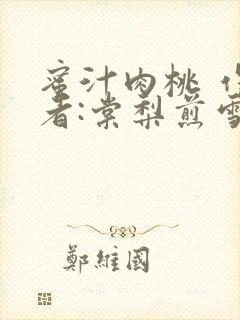 蜜汁肉桃 作
者:棠梨煎雪
鄭維國